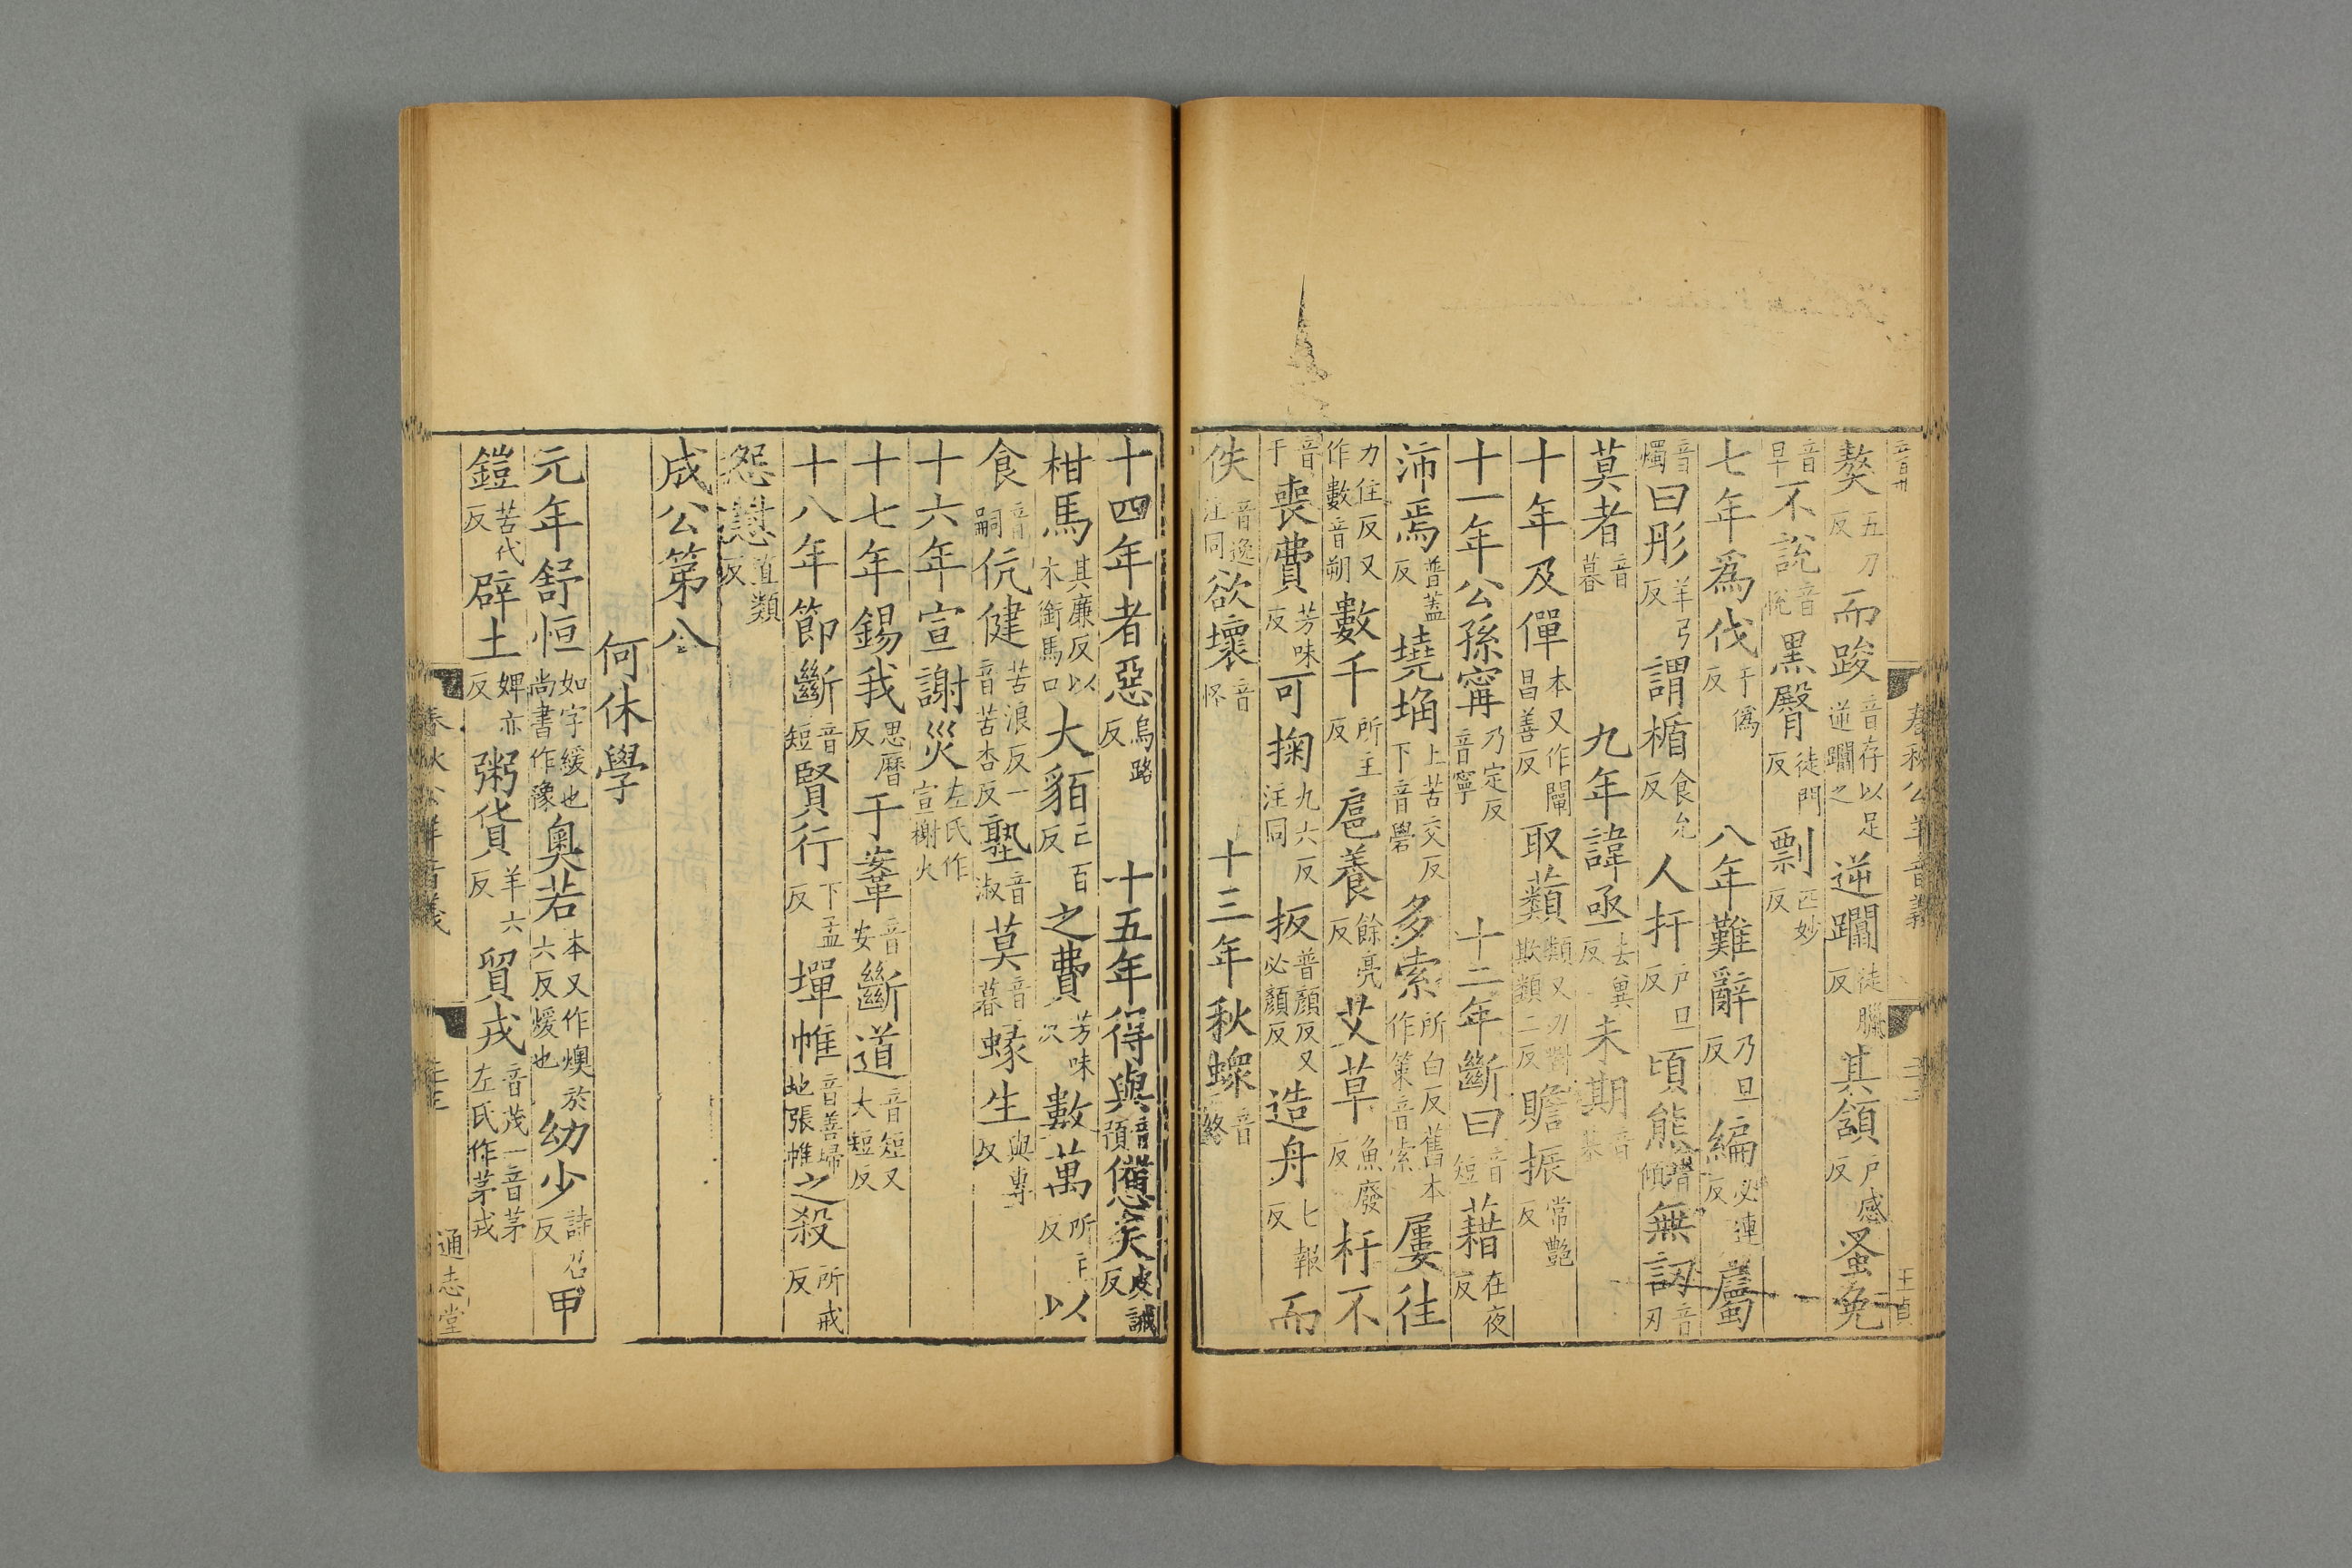 獒五刀反而踆音存以足逆躙之逆躙徒臘反其頷戶感反蚤免
音早不說音悅黑臀徒門反剽匹妙反
七年爲伐于僞反八年難辭乃旦反編必連反屬
音燭曰肜羊弓反謂楯食允反人扞戶旦反頃熊音傾無訒音刃
莫者音暮九年諱亟去冀反未期音朞
十年及僤本又作闡昌善反取蘱類又力對欺類二反贍振常艷反
十一年公孫甯乃定反音寧十二年斷曰音短藉在夜反
沛焉普蓋反墝埆上苦交反下音礐多索所白反舊本作策音索屢往
力住反又作數音朔數千所主反扈養餘亮反艾草魚廢反杅不
音于喪費芳味反可掬九六反注同扳普顏反又必顏反造舟七報反而
佚音逸注同欲壞音怪十三年秋螺音終
十四年者惡烏路反十五年得與音預憊矣皮誡反
柑馬其廉反以木銜馬口大貊亡百反之費芳味反數萬所主反以
食音嗣伉健苦浪反一音苦杏反塾音淑莫音暮蝝生與專反
十六年宣謝災左氏作宣榭火
十七年錫我思曆反于鞌音安斷道音短又大短反
十八年節斷音短賢行下孟反墠帷音善埽地張帷之殺所戒反
怨懟直類反
成公第八
何休學
元年舒恒如字緩也尚書作豫奧若本又作燠於六反煖也幼少詩召反甲
鎧苦代反辟土婢亦反粥貨羊六反貿戎音茂一音茅左氏作茅戎
春秋公羊音義
通志堂